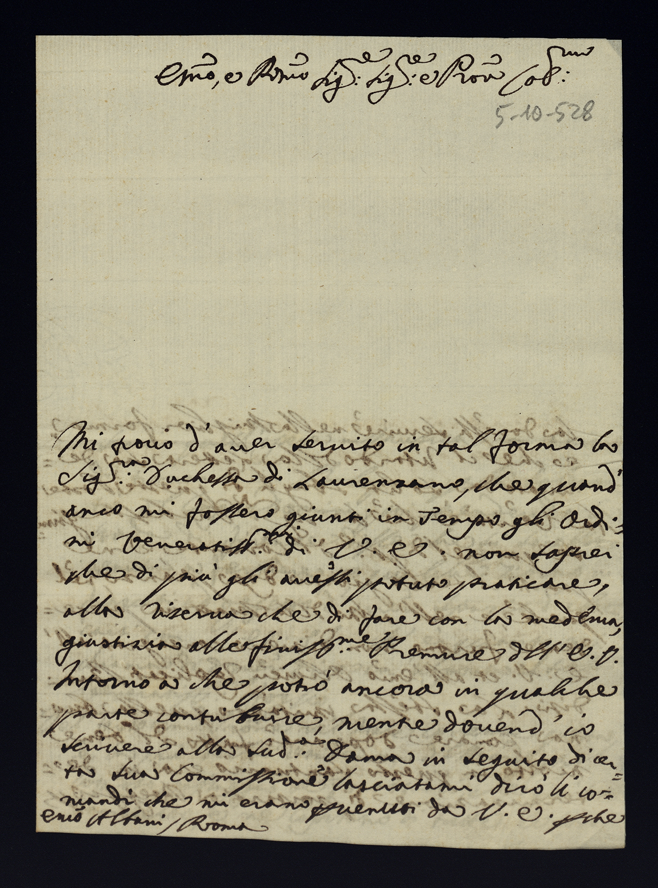 Emo, e Rmo Sig:re Sig:re e Pron Cob:mo
5-10-528
Mi porio d'aver servito in tal forma la
Sig:ra Duchessa di Laurenzano, che quand'
anco mi fossero giunti in Tempo gli Ordi=
ni Veneratiss:mi di V. E. non saprei
che di più gli avessi potuto praticare,
alla riserva che di fare con la medema,
giustizia alle finiss:me Premure dell' E. V.
Intorno a che potrò ancora in qualche
parte contribuire, mentre dovend' io
scrivere alla Sud:a Dama in seguito di cer=
ta sua Commissione lasciatami dirò li co=
mandi che mi erano da V. E. pche
Emo Albani / Roma